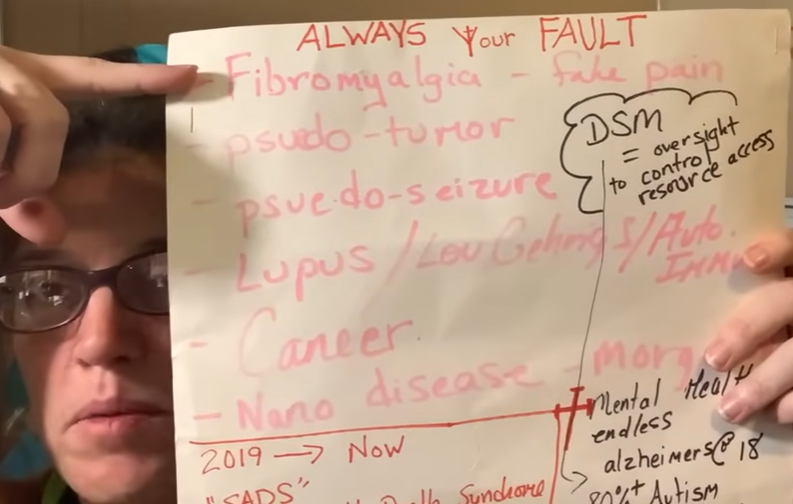 ALWAYS Your FAULT
- Fibromyalgia - fake pain
- psudo-tumor
- psuedo-seizure
DSM
= oversight
to control
resource access
- Lupus / Lou Gehrigs / Auto.
- Cancer.
- Nano disease - morg
2019 → Now
"SADS"
Syndrome
Mental Healt
endless
alzheimers @ 18
80%+ Autism